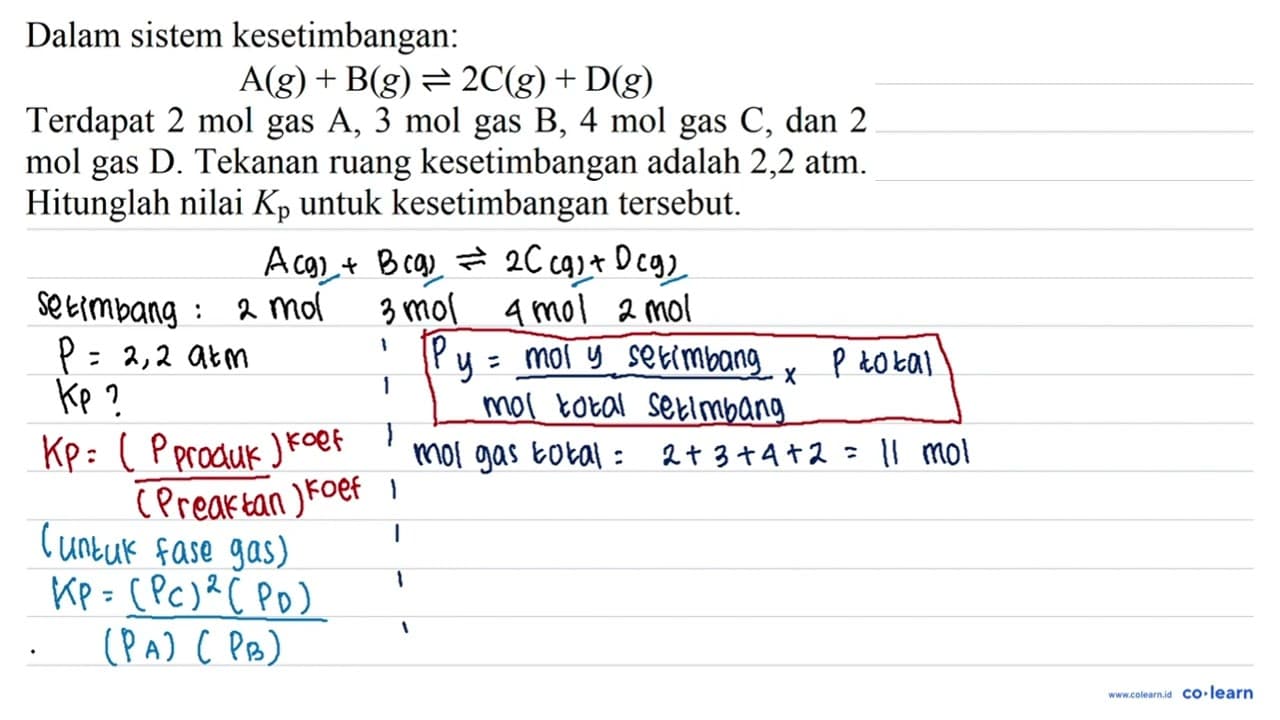 Dalam sistem kesetimbangan:
A(g) + B(g) ⇌ 2C(g) + D(g)
Terdapat 2 mol gas A, 3 mol gas B, 4 mol gas C, dan 2
mol gas D. Tekanan ruang kesetimbangan adalah 2,2 atm.
Hitunglah nilai Kp untuk kesetimbangan tersebut.
A(g) + B(g) ⇌ 2C(g) + D(g)
setimbang : 2 mol 3 mol 4 mol 2 mol
P = 2,2 atm
Kp ?
Kp = (P produk)^koef
(P reaktan)^koef
(untuk fase gas)
Kp = (PC)² (PD)
(PA) (PB)
Py = mol y setimbang × P total
mol total setimbang
mol gas total = 2 + 3 + 4 + 2 = 11 mol
www.colearn.id co·learn